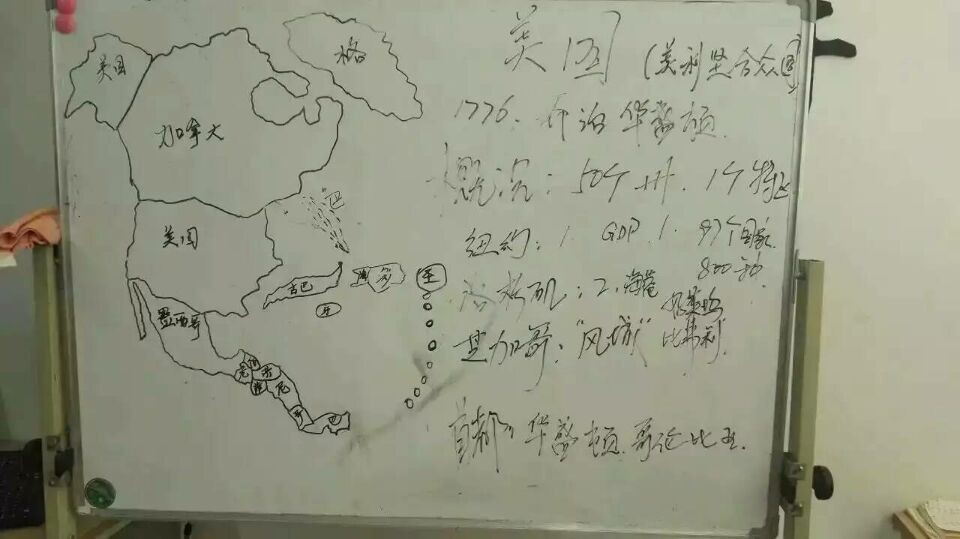 美国
格
加拿大
美国
巴
古巴
海 多
圣
牙
墨西哥
危 伯
洪
萨
尼
哥
巴
美国 (美利坚合众国)
1776. 乔治华盛顿.
概况: 50个州. 1个特区
纽约: 1. GDP. 1. 97个国家
800种
洛杉矶: 2. 海港 好莱坞
比弗利
芝加哥: "风城"
首都: 华盛顿. 哥伦比亚.